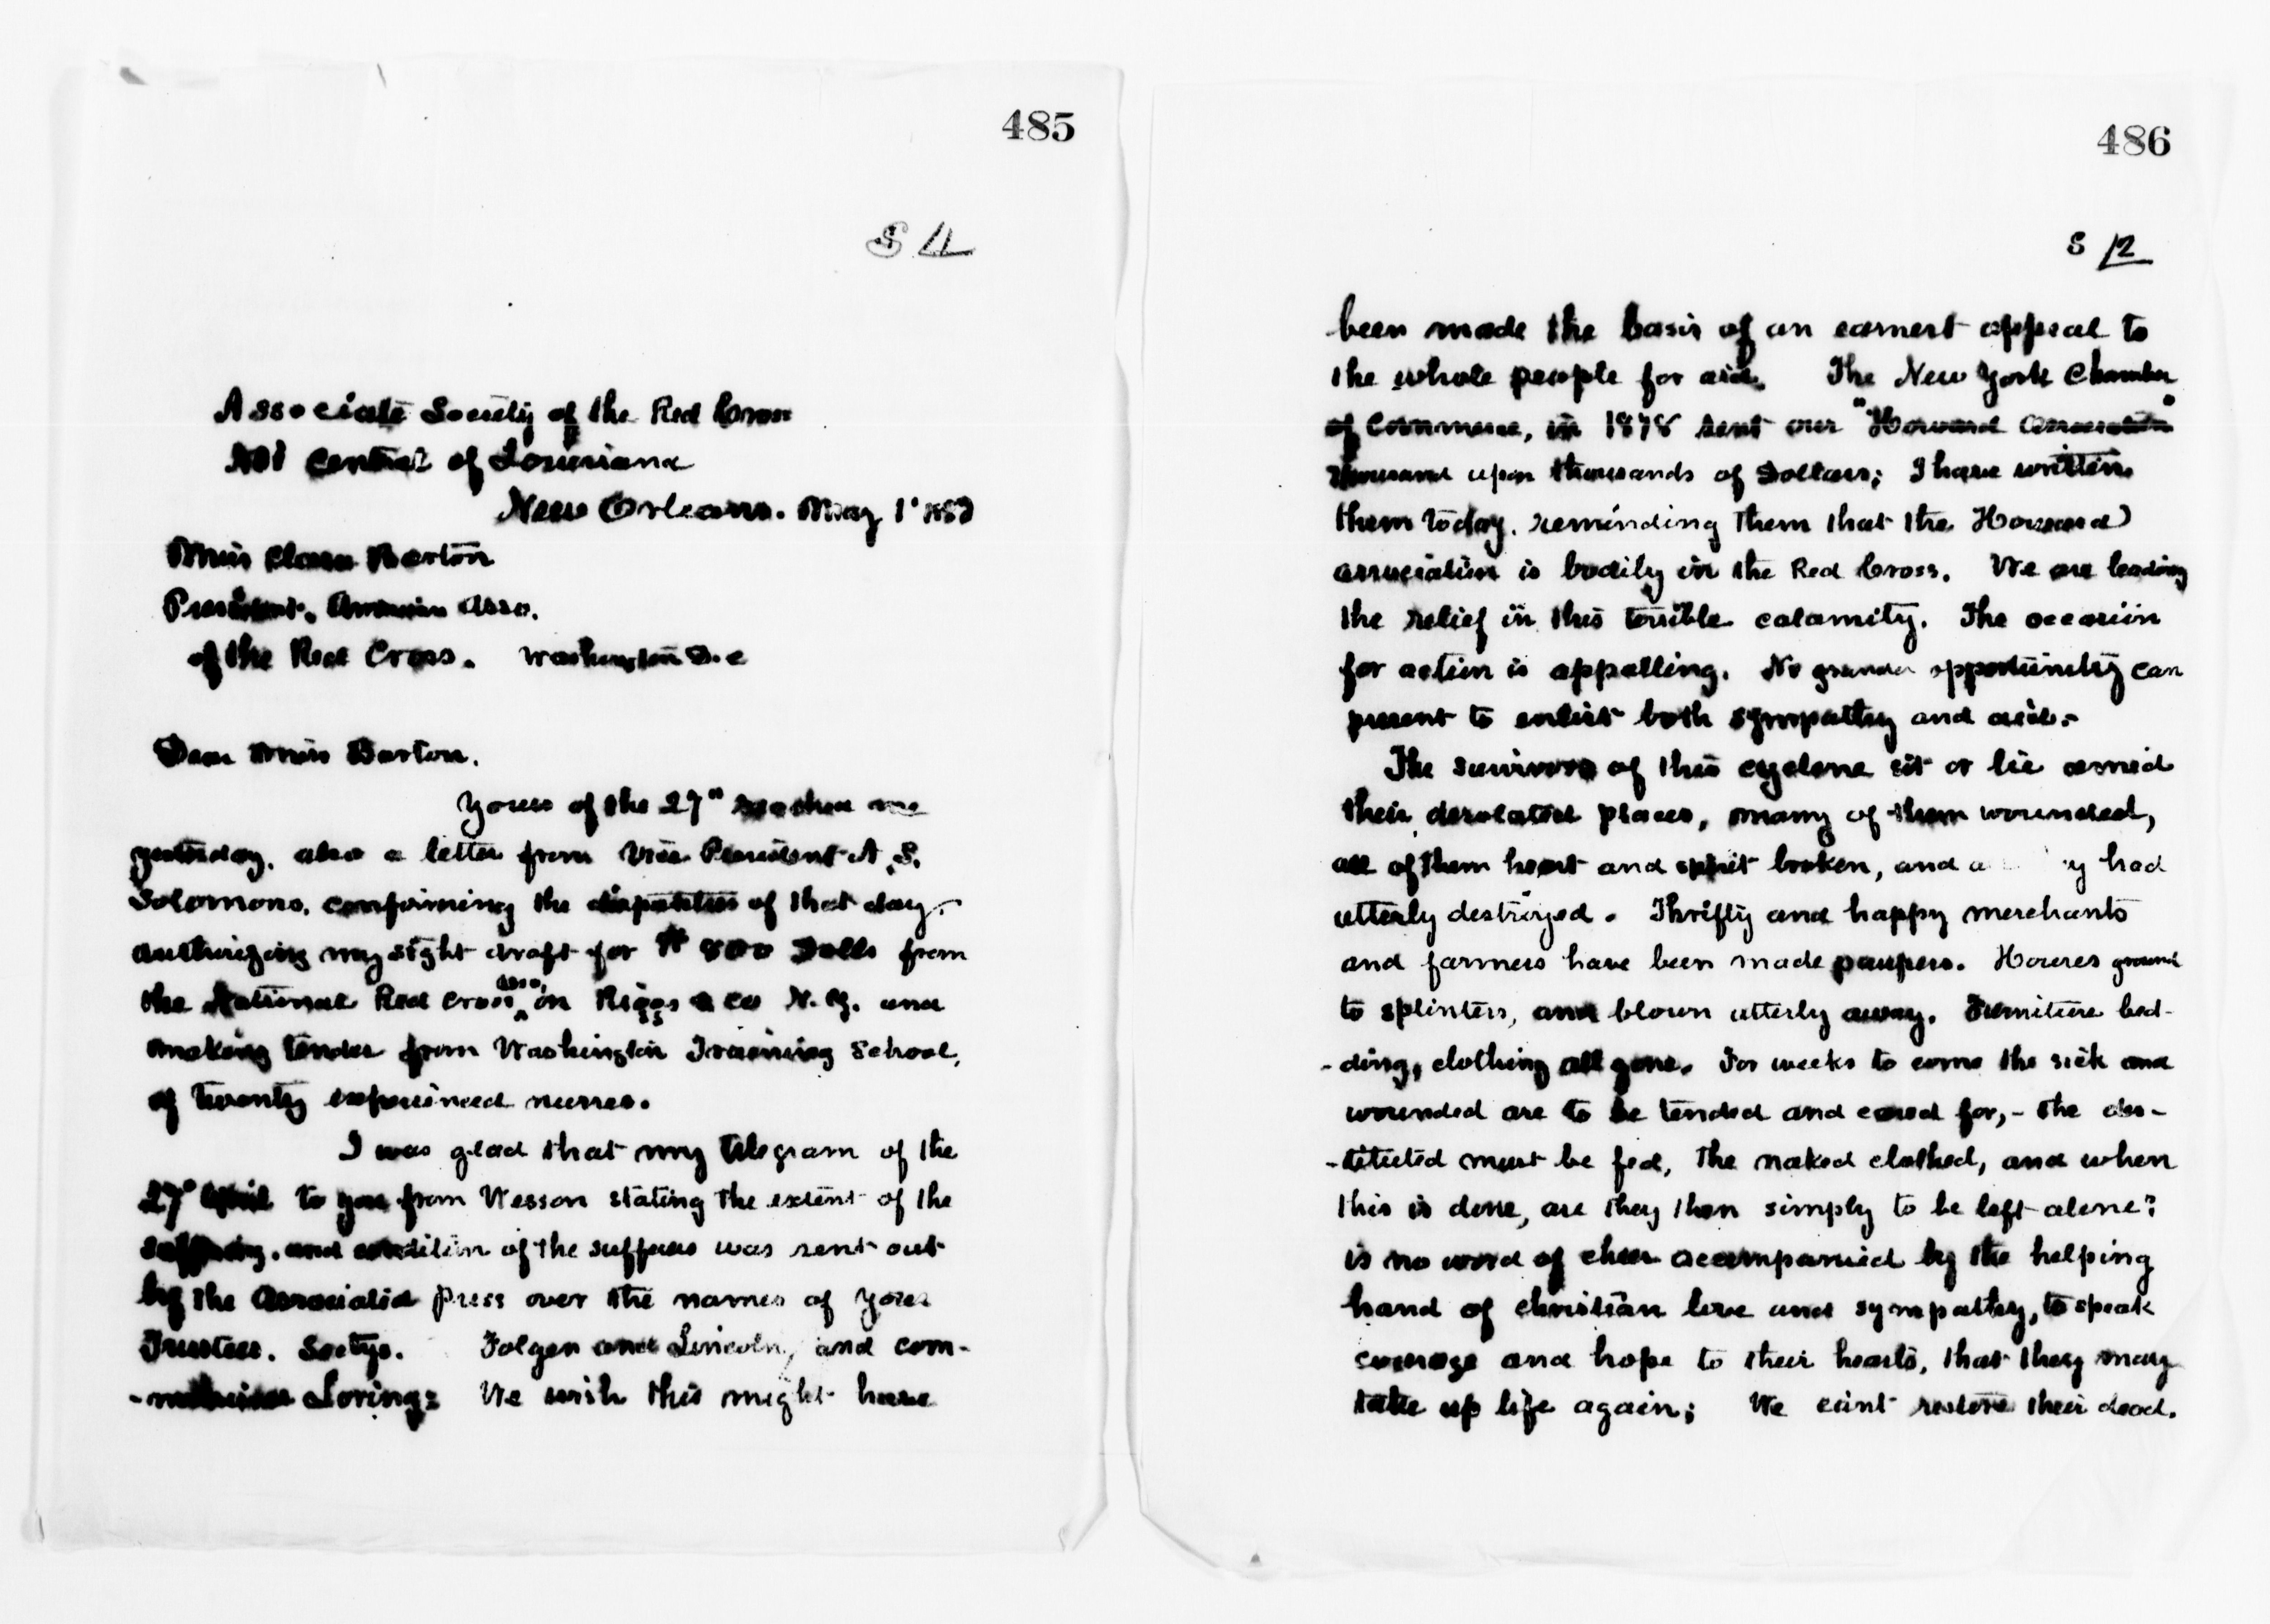 485
S 11
Associate Society of the Red Cross
No 1 Central of Louisiana
New Orleans. May 1' 1883
Miss Clara Barton
President. American Asso.
of the Red Cross. Washington D.C
Dear Miss Barton.
Yours of the 27" reached me
yesterday. also a letter from Vice President A.S.
Solomons. confirming the dispatches of that day
authorizing my sight draft for $ 800 Dolls from
the National Red Cross Asso, on Riggs & Co N.Y. and
making tender from Washington Training School,
of twenty experienced nurses.
I was glad that my telegram of the
27" April to you from Wesson stating the extent of the
suffering. and condition of the sufferers was sent out
by the Associated Press over the names of your
Trustees. Sectys. Folger and Lincoln, and com-
-missioner Loring: We wish this might have
486
S 12
been made the basis of an earnest appeal to
the whole people for aid. The New York Chamber
of Commerce, in 1878 sent our "Howard Association"
thousand upon thousands of Dollars; I have written
them today. reminding them that the Howard
association is bodily in the Red Cross. We are leading
the relief in this terrible calamity. The occasion
for action is appalling. No grander opportunity can
present to enlist both sympathy and aid.-
The survivors of this cyclone sit or lie amid
their desolated places, many of them wounded,
all of them heart and spirit broken, and a y had
utterly destroyed. Thrifty and happy merchants
and farmers have been made paupers. Houses ground
to splinters, and blown utterly away. Furniture bed-
-ding, clothing all gone. For weeks to come the sick and
wounded are to be tended and cared for,- the des-
-tituted must be fed, the naked clothed, and when
this is done, are they then simply to be left alone?
is no word of cheer accompanied by the helping
hand of christian love and sympathy, to speak
courage and hope to their hearts, that they may
take up life again; We cant restore their dead.